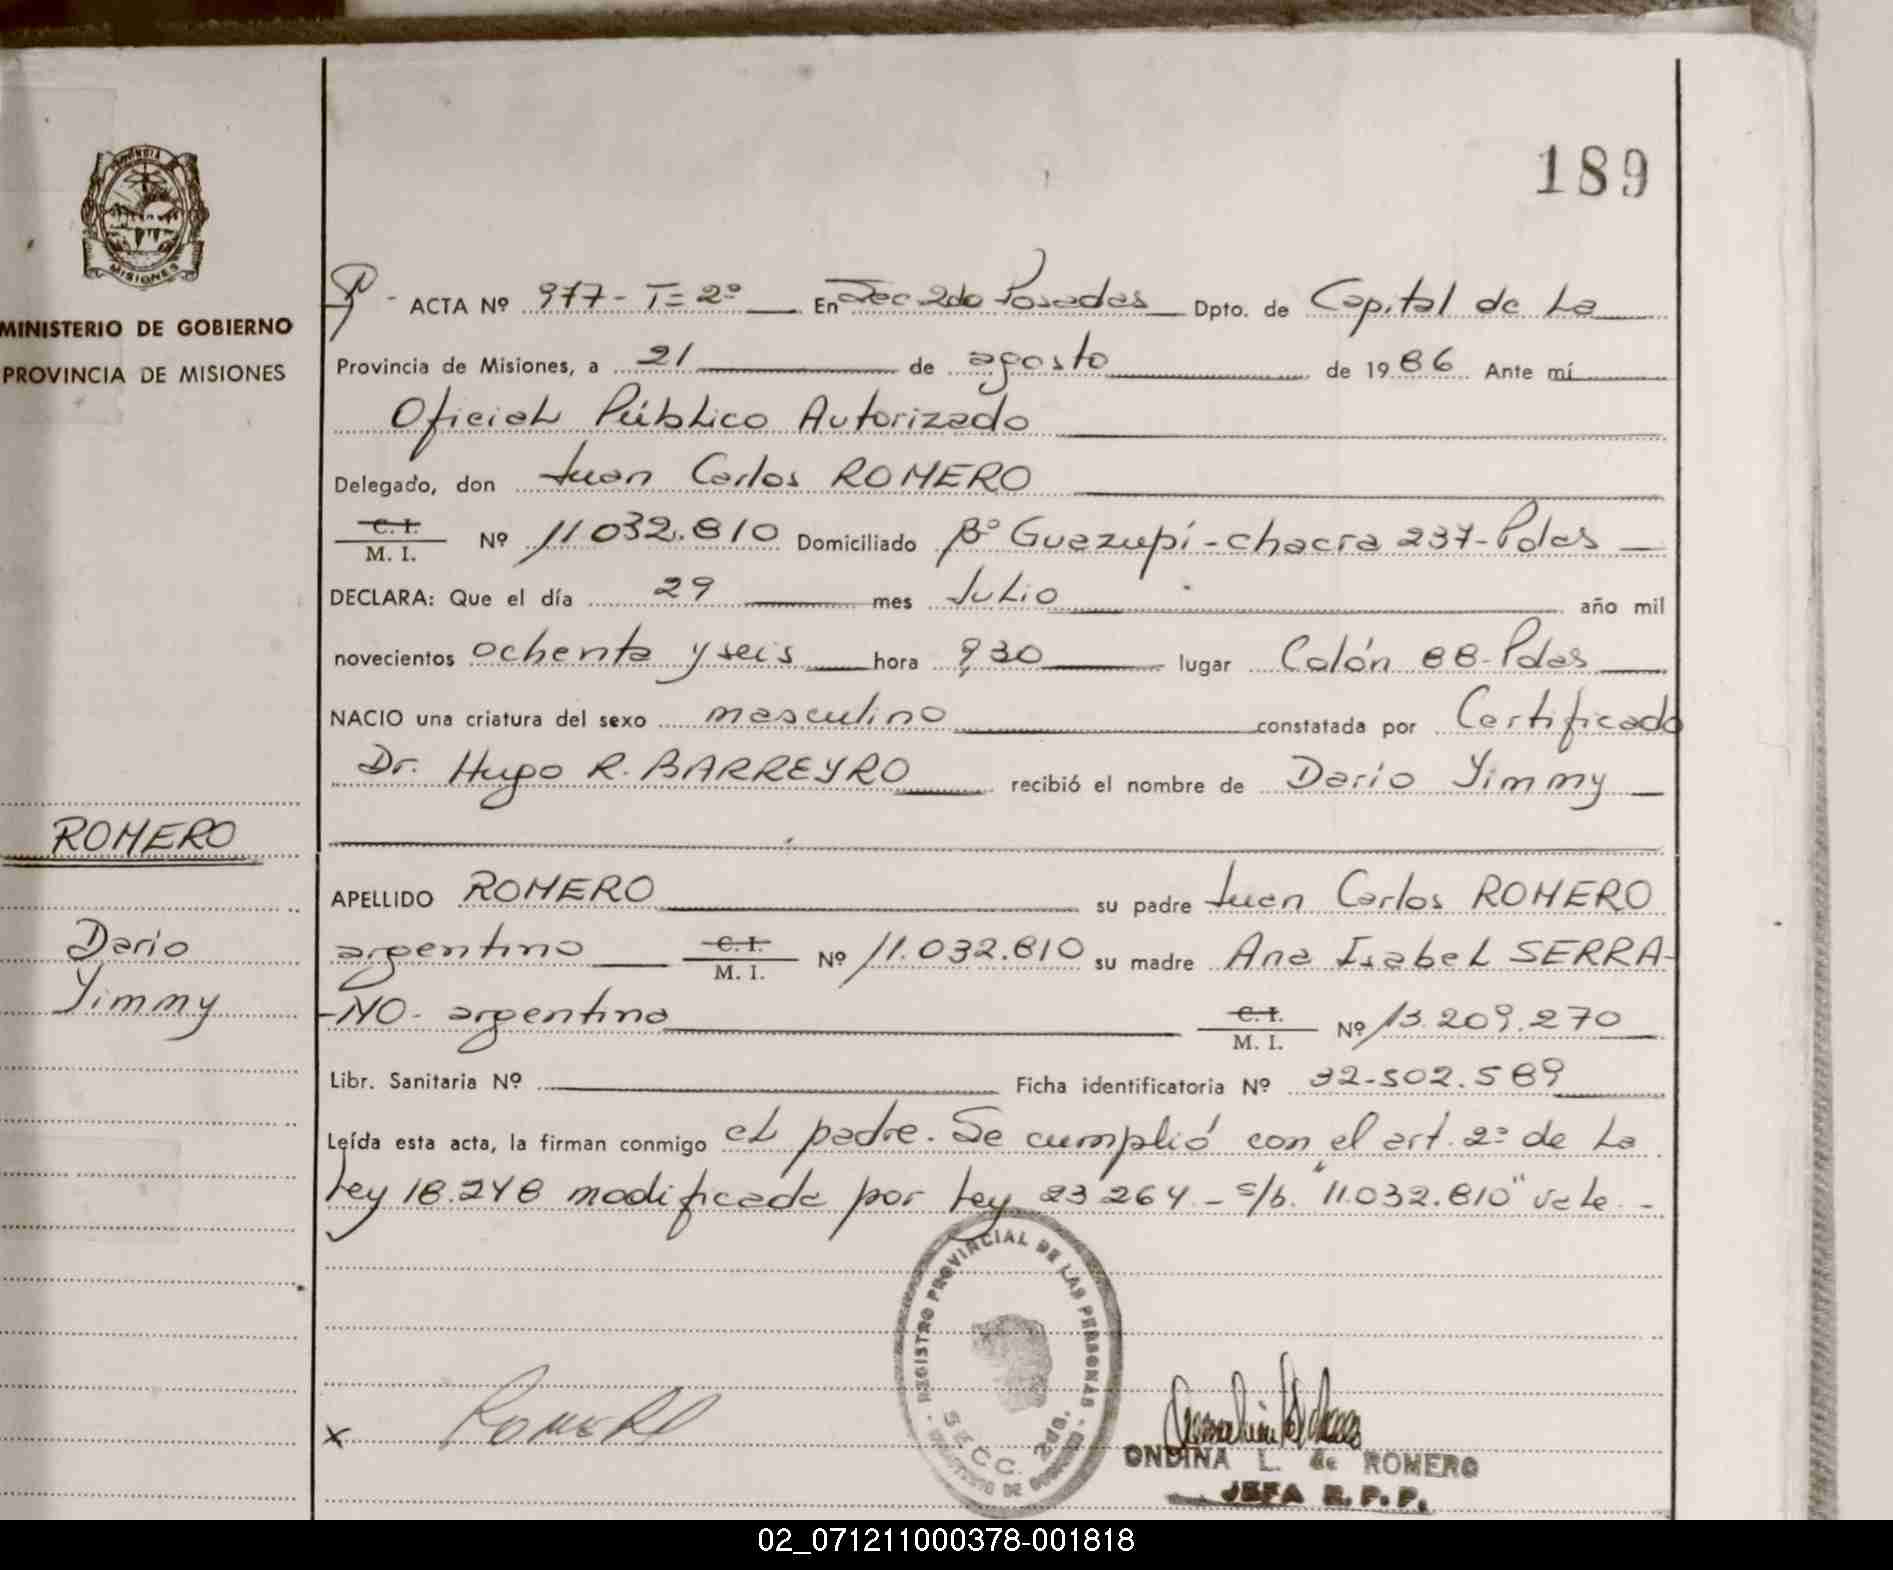 PROVINCIA
MISIONES
MINISTERIO DE GOBIERNO
PROVINCIA DE MISIONES
189
ACTA Nº 977 - T= 2º En Sec 2da Posadas Dpto. de Capital de La
Provincia de Misiones, a 21 de agosto de 1986 Ante mí
Oficial Público Autorizado
Delegado, don Juan Carlos ROMERO
C. I.
M. I. Nº 11 032.810 Domiciliado Bº Guazupí - chacra 237 - Pdas
DECLARA: Que el día 29 mes Julio año mil
novecientos ochenta y seis hora 9,30 lugar Colón 88 - Pdas
NACIO una criatura del sexo masculino constatada por Certificado
Dr. Hugo R. BARREYRO recibió el nombre de Dario Yimmy
ROMERO
Dario
Yimmy
APELLIDO ROMERO su padre Juan Carlos ROMERO
argentino C. I.
M. I. Nº 11.032.810 su madre Ana Isabel SERRA-
-NO - argentina C. I.
M. I. Nº 13.209.270
Libr. Sanitaria Nº Ficha identificatoria Nº 32-502.589
Leída esta acta, la firman conmigo el padre. Se cumplió con el art. 2º de La
Ley 18.248 modificada por Ley 23 264 - s/b. "11.032.810" vale -
REGISTRO PROVINCIAL DE LAS PERSONAS
SECC. 2da.
x ROMERO
ONDINA L. de ROMERO
JEFA R. P. P.
02_071211000378-001818